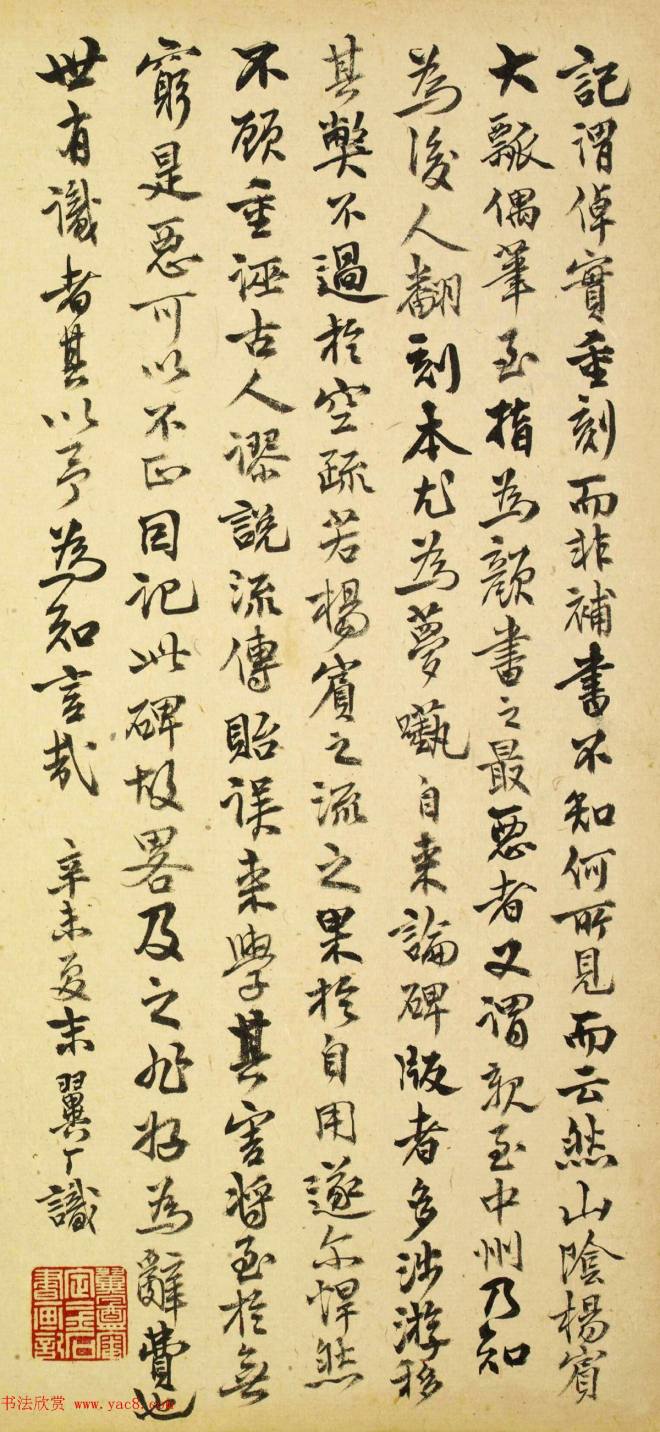 記謂倬實重刻而非補書不知何所見而云然山陰楊賓
大瓢偶筆至指為顏書之最惡者又謂親至中州乃知
為後人翻刻本尤為夢囈自來論碑版者多涉游移
其弊不過於空疏若楊賓之流之果於自用遂尔悍然
不顧重誣古人謬說流傳貽误来學其害將至於無
窮是惡可以不正因记此碑故畧及之非好為辭費也
世有識者其以予為知言哉
辛未夏末翼丁識
书法欣赏 www.yac8.com